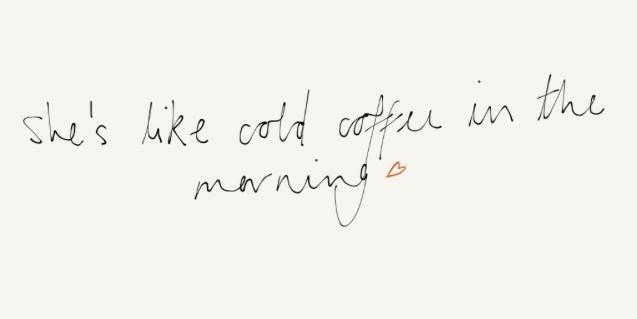 she's like cold coffee in the
morning